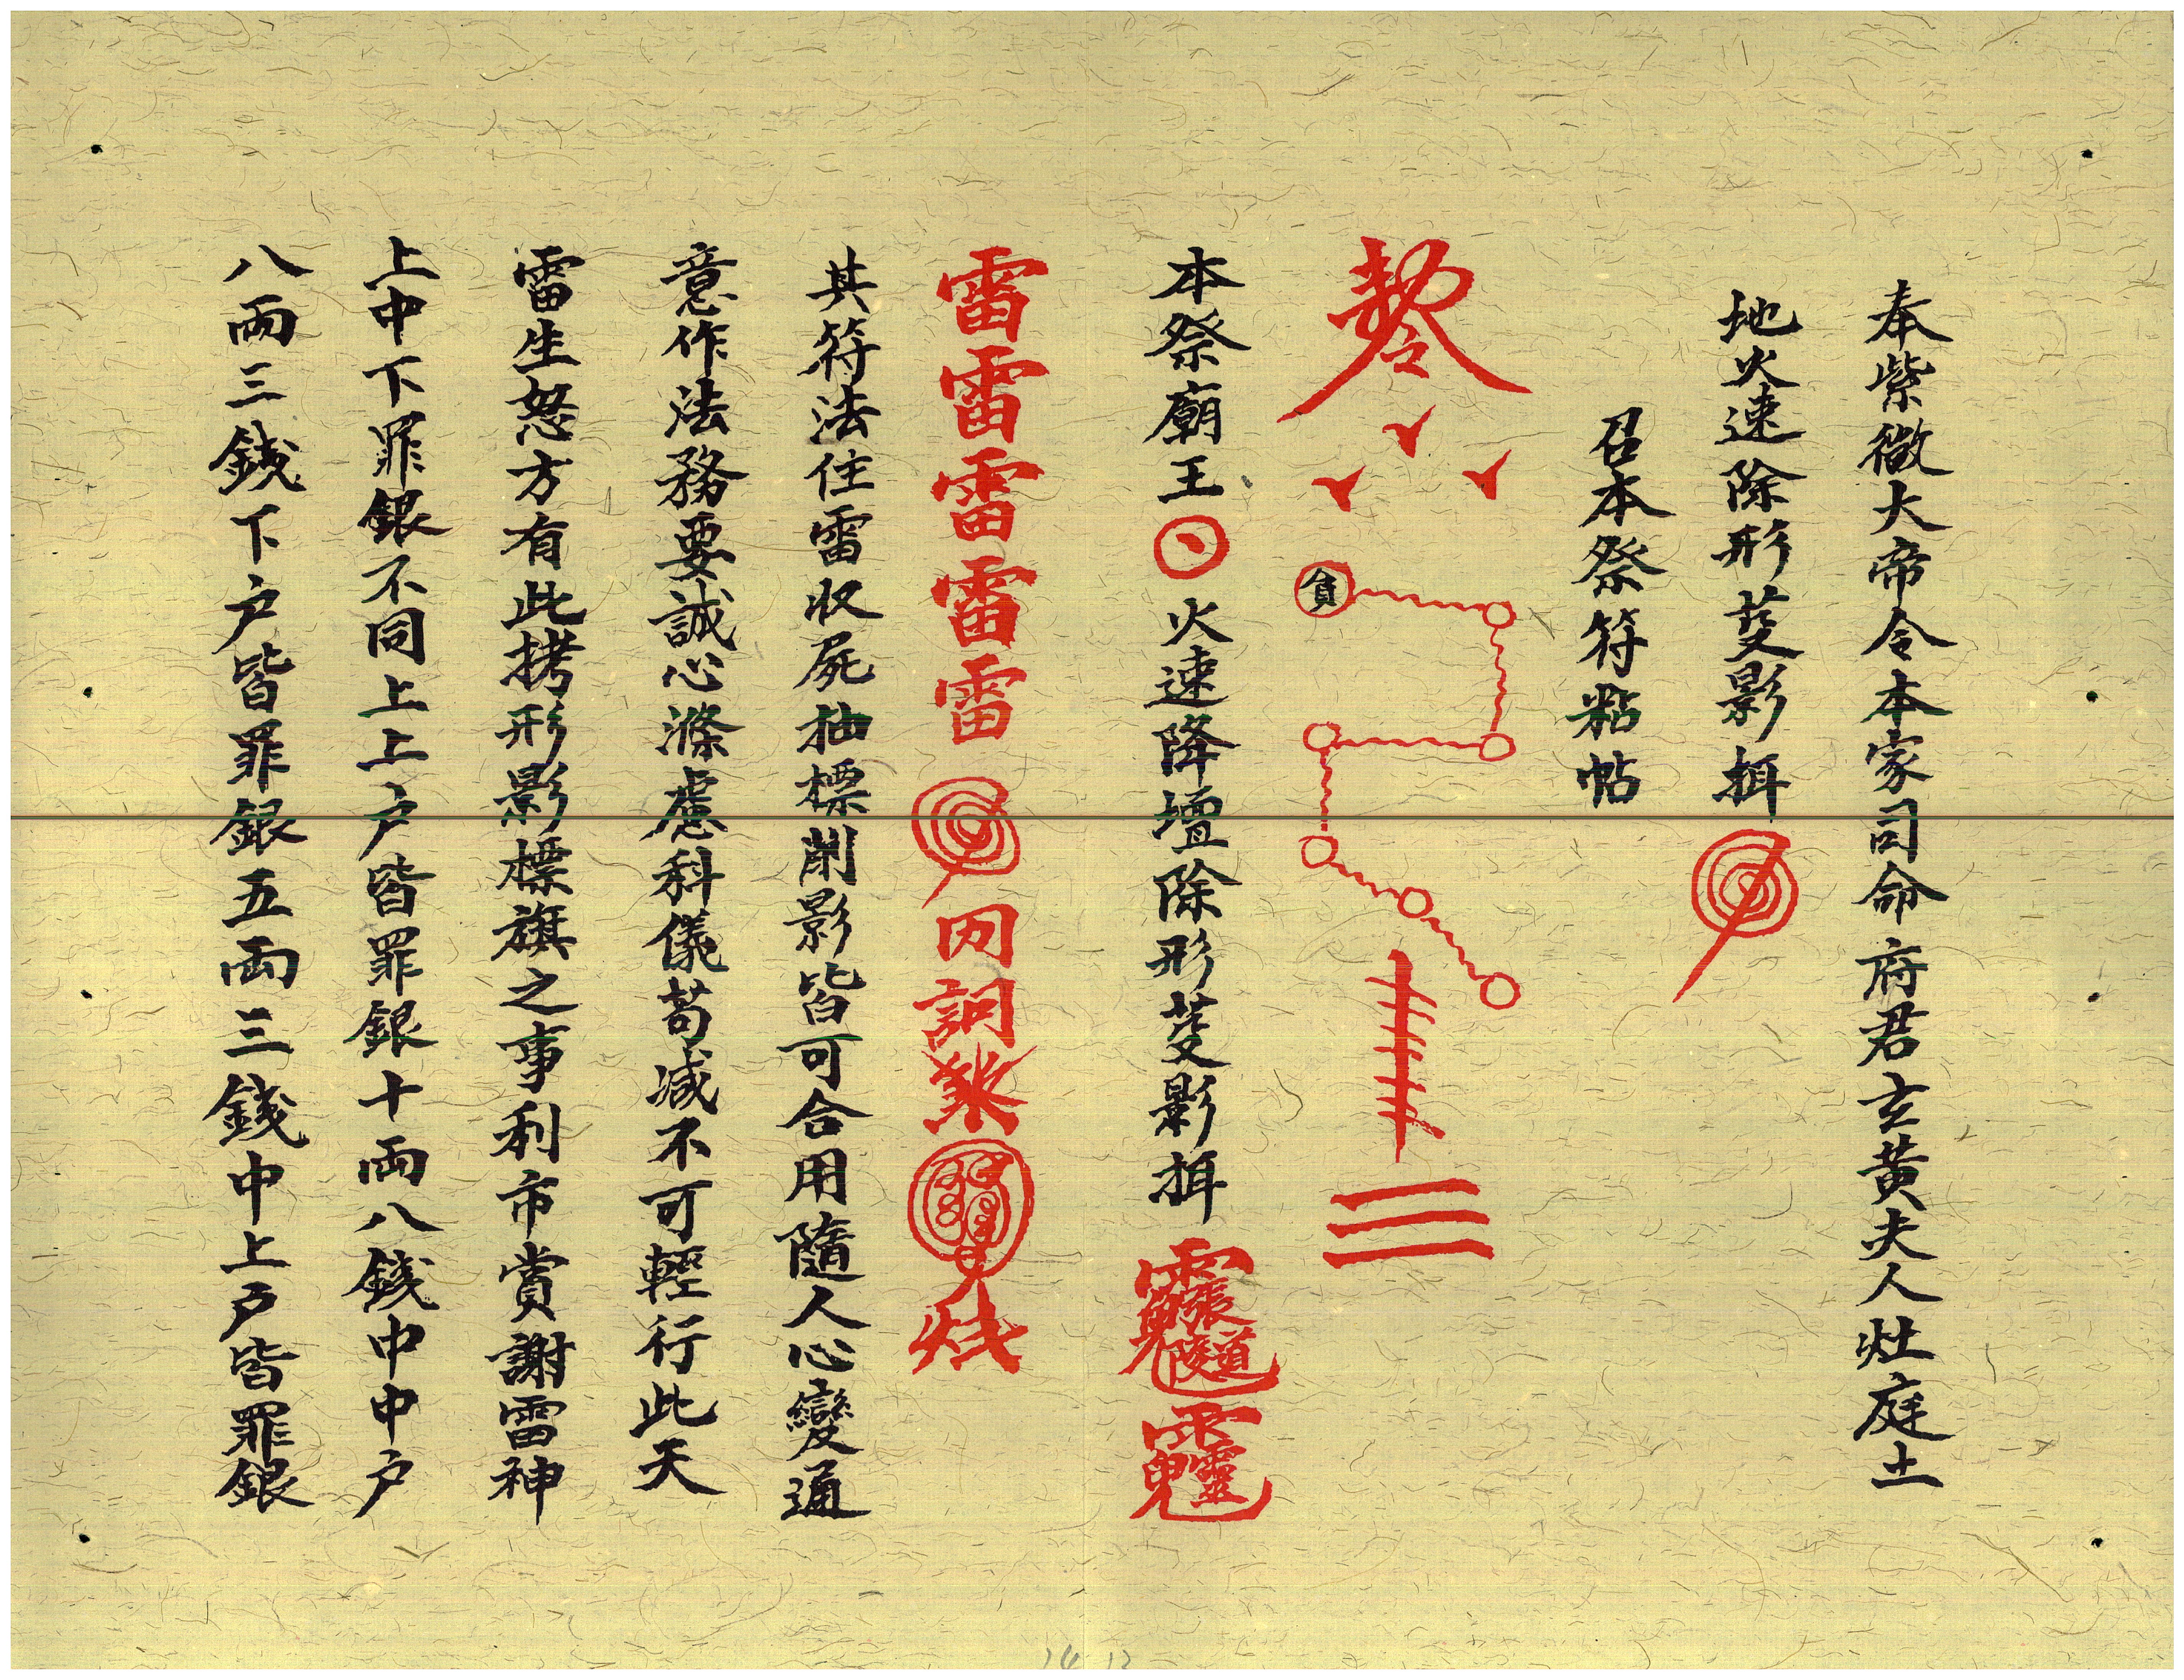 奉紫微大帝令本家司命府君玄黃夫人灶庭土
地火速除形芟影搑
召本祭符粘帖
貪
本祭廟王火速降壇除形芟影
雷雷雷雷雷
其符法住雷收屍抽標削影皆可合用隨人心變通
意作法務要誠心滌慮科儀苟減不可輕行此天
雷生怒方有此拷形影標旗之事利市賞謝雷神
上中下罪銀不同上上戶皆罪銀十兩八錢中中戶
八兩三錢下戶皆罪銀五兩三錢中上戶皆罪銀